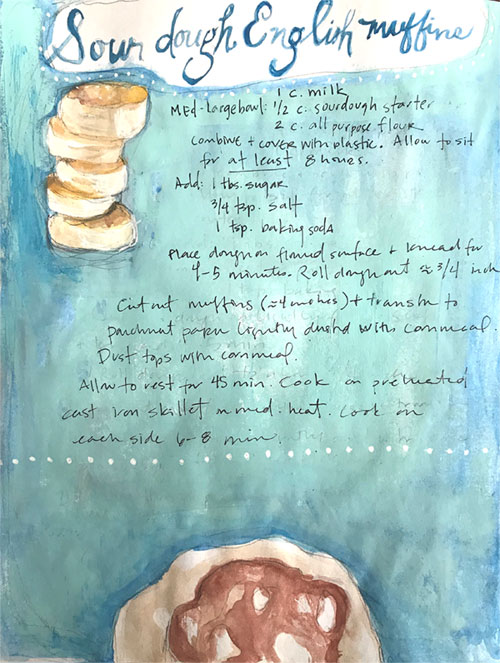 Sour dough English muffins
1 c. milk
Med-Large bowl: 1/2 c. sourdough starter
2 c. all purpose flour
Combine + cover with plastic. Allow to sit
for at least 8 hours.
Add: 1 tbs. sugar
3/4 tsp. salt
1 tsp. baking soda
Place dough on floured surface + knead for
4-5 minutes. Roll dough out ≈ 3/4 inch
Cut out muffins (≈4 inches) + transfer to
parchment paper lightly dusted with cornmeal.
Dust tops with cornmeal.
Allow to rest for 45 min. Cook on preheated
cast iron skillet on med. heat. Cook on
each side 6-8 min.